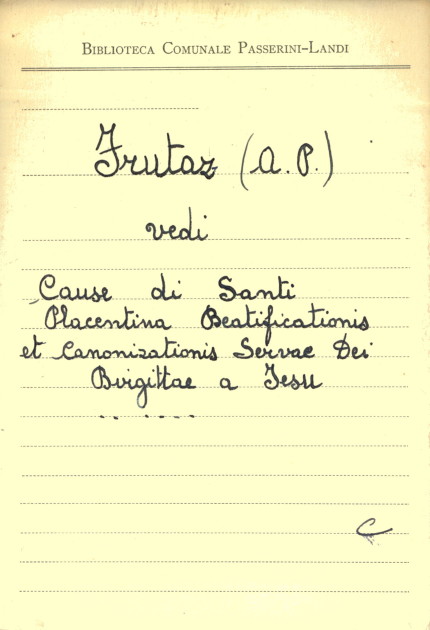 BIBLIOTECA COMUNALE PASSERINI-LANDI
Frutaz (A. P.)
vedi
Cause di Santi
Placentina Beatificationis
et Canonizationis Servae Dei
Birgittae a Jesu
.. ....
C